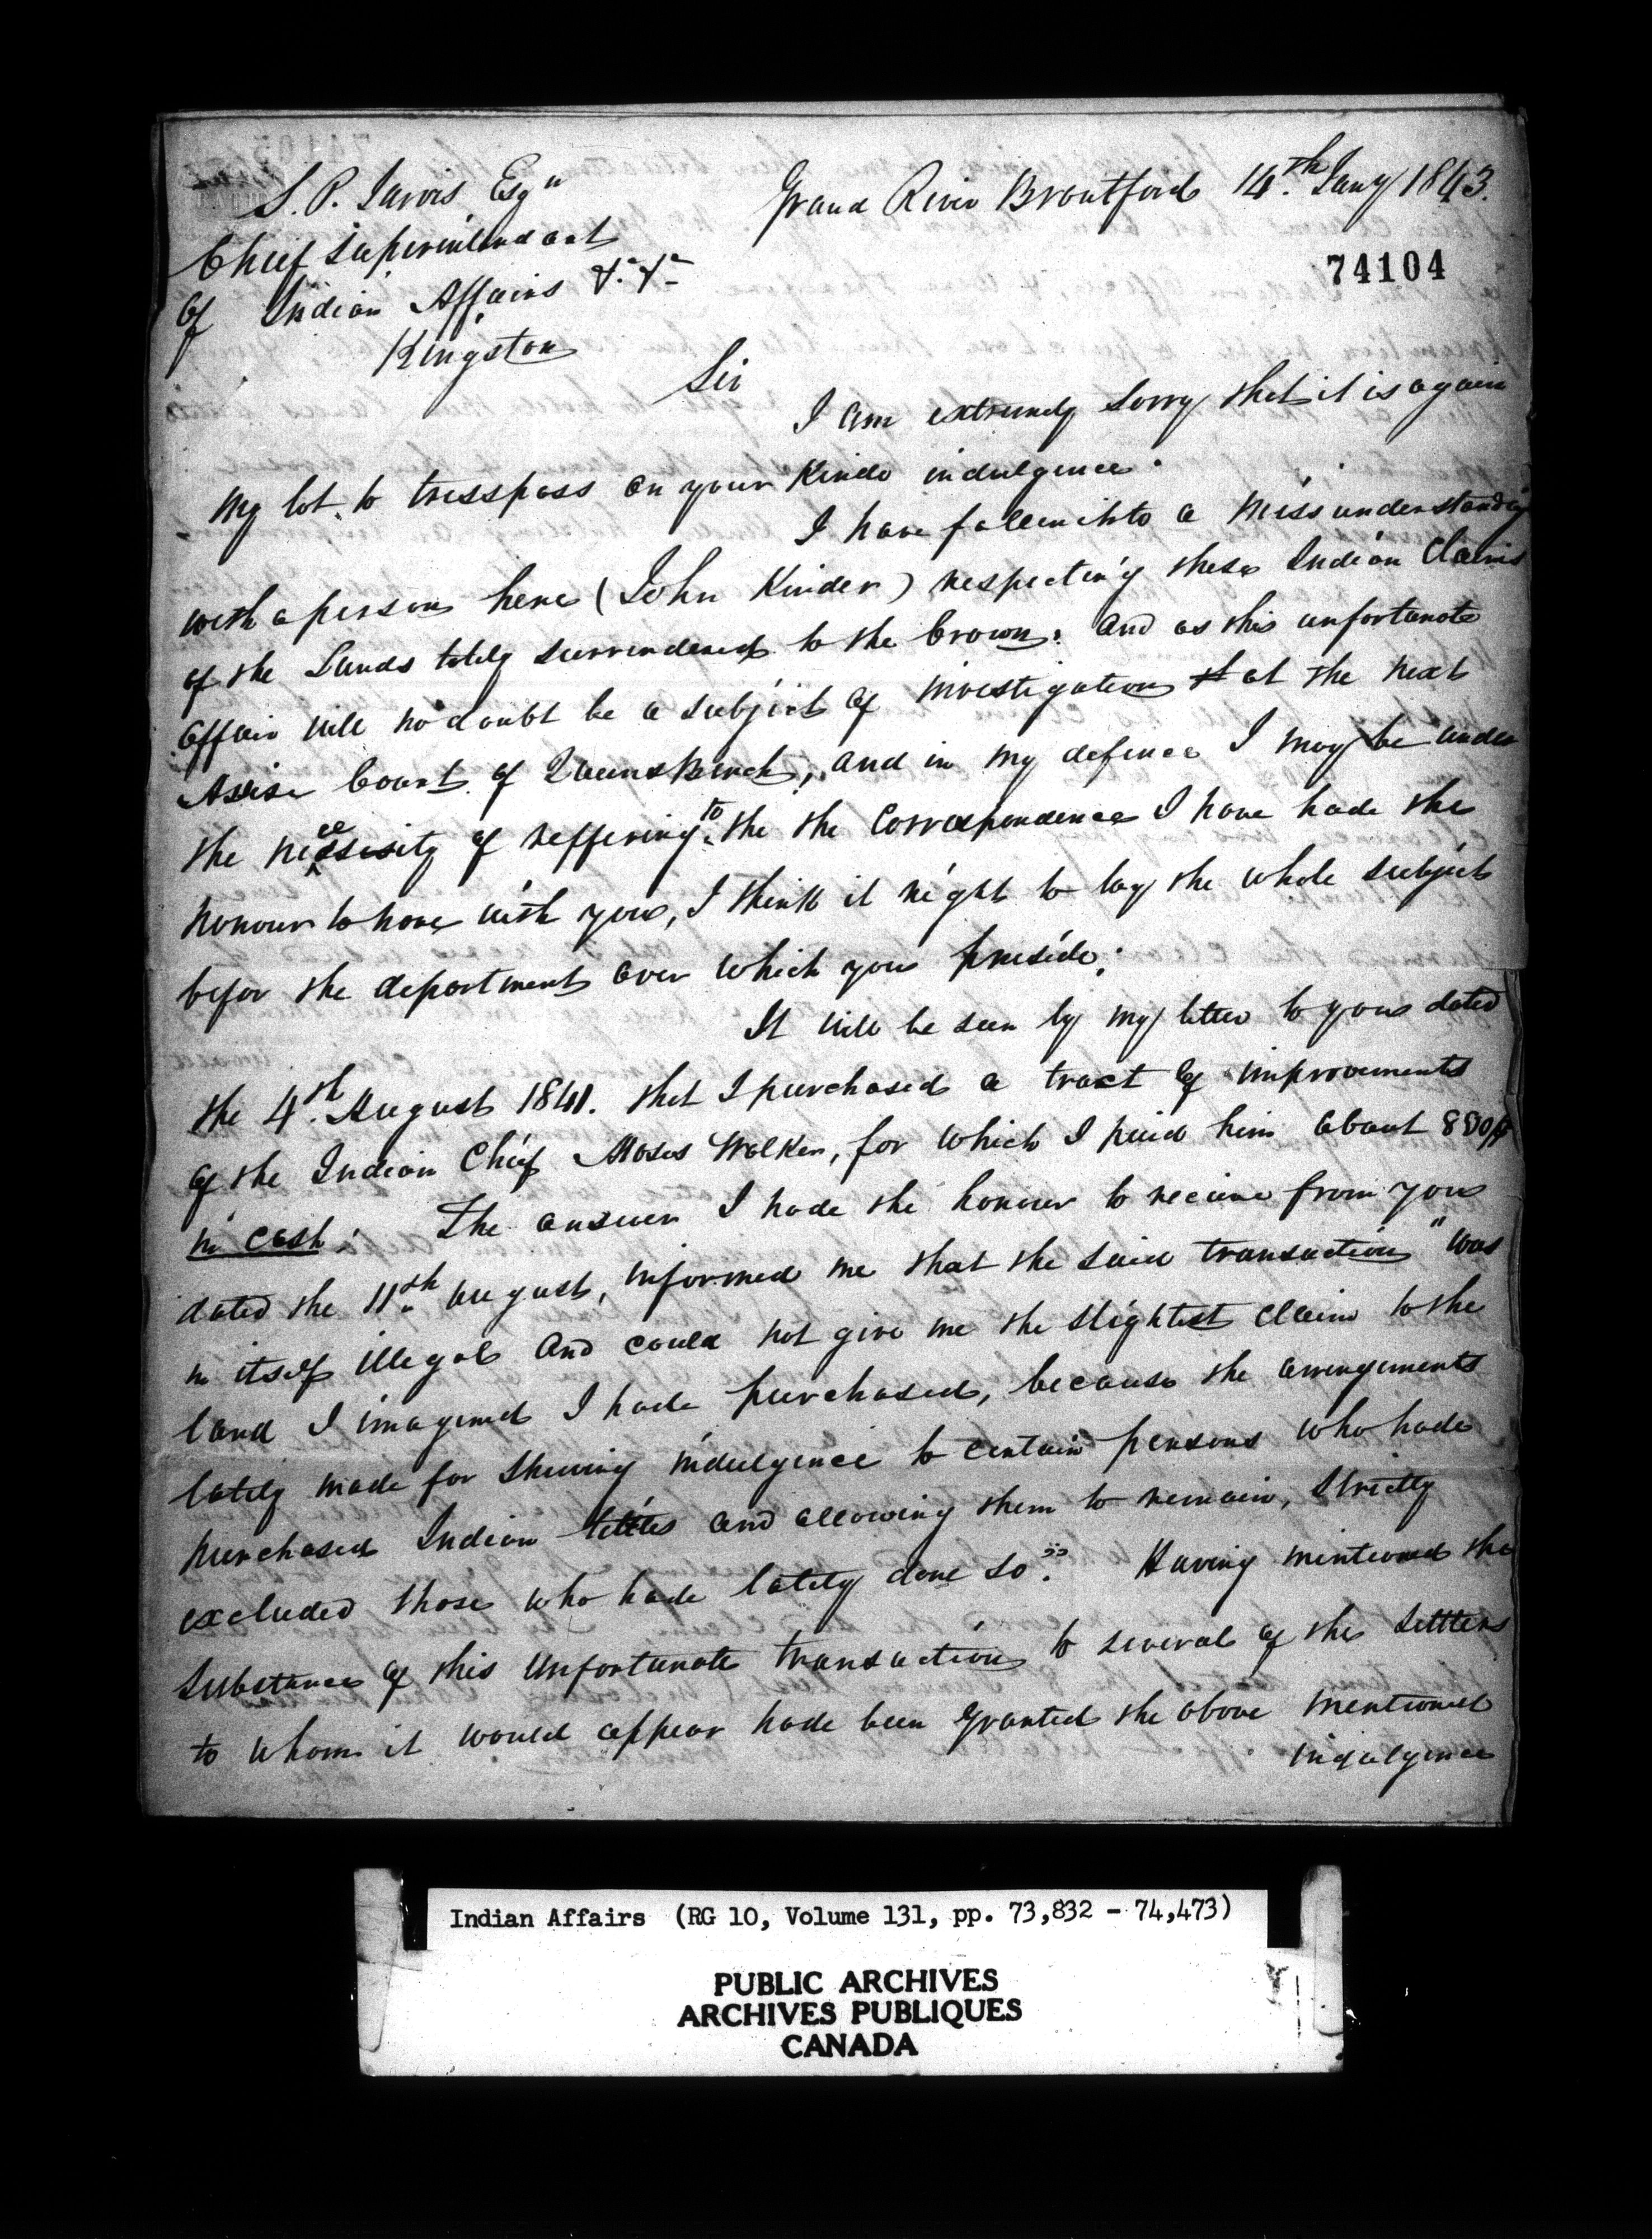 S. P. Jarvis Esqr
Grand River Brantford 14.th Jany 1843.
Chief Superintendant
74104
of Indian Affairs &c &c
Kingston
Sir
I am extremely sorry that it is again
my lot to tresspass on your kinde indulgence.
I have fallen into a missunderstanding
with a person here (John Kinder) respecting these Indian Claims
of the Lands lately surrendered to the Crown: and as this unfortunate
affair will no doubt be a subject of investigation at the next
Assise Court of Queens Bench, and in my defence I may be under
the necessity of reffering to the the Correspondence I have hade the
honour to have with you, I think it right to lay the whole subject
befor the department over which you preside.
It will be seen by my letter to you dated
the 4.th August 1841. that I purchased a tract of improvements
of the Indian Chief Moses Walker, for which I paid him about 800$
in cash: The answer I hade the honour to recieve from you
dated the 11th august, informed me that the said transaction "was
in itself illegal and could not give me the slightest claim to the
land I imagined I hade purchased, because the arrengements
lately made for shewing indulgence to certain persons who hade
purchased Indian titles and allowing them to remain, strictly
excluded those who hade lately done so." Having mentioned the
substance of this unfortunate transaction to several of the settlers
to whom it would appear hade been granted the above mentioned
indulgence
Indian Affairs (RG 10, Volume 131, pp. 73,832 - 74,473)
PUBLIC ARCHIVES
ARCHIVES PUBLIQUES
CANADA